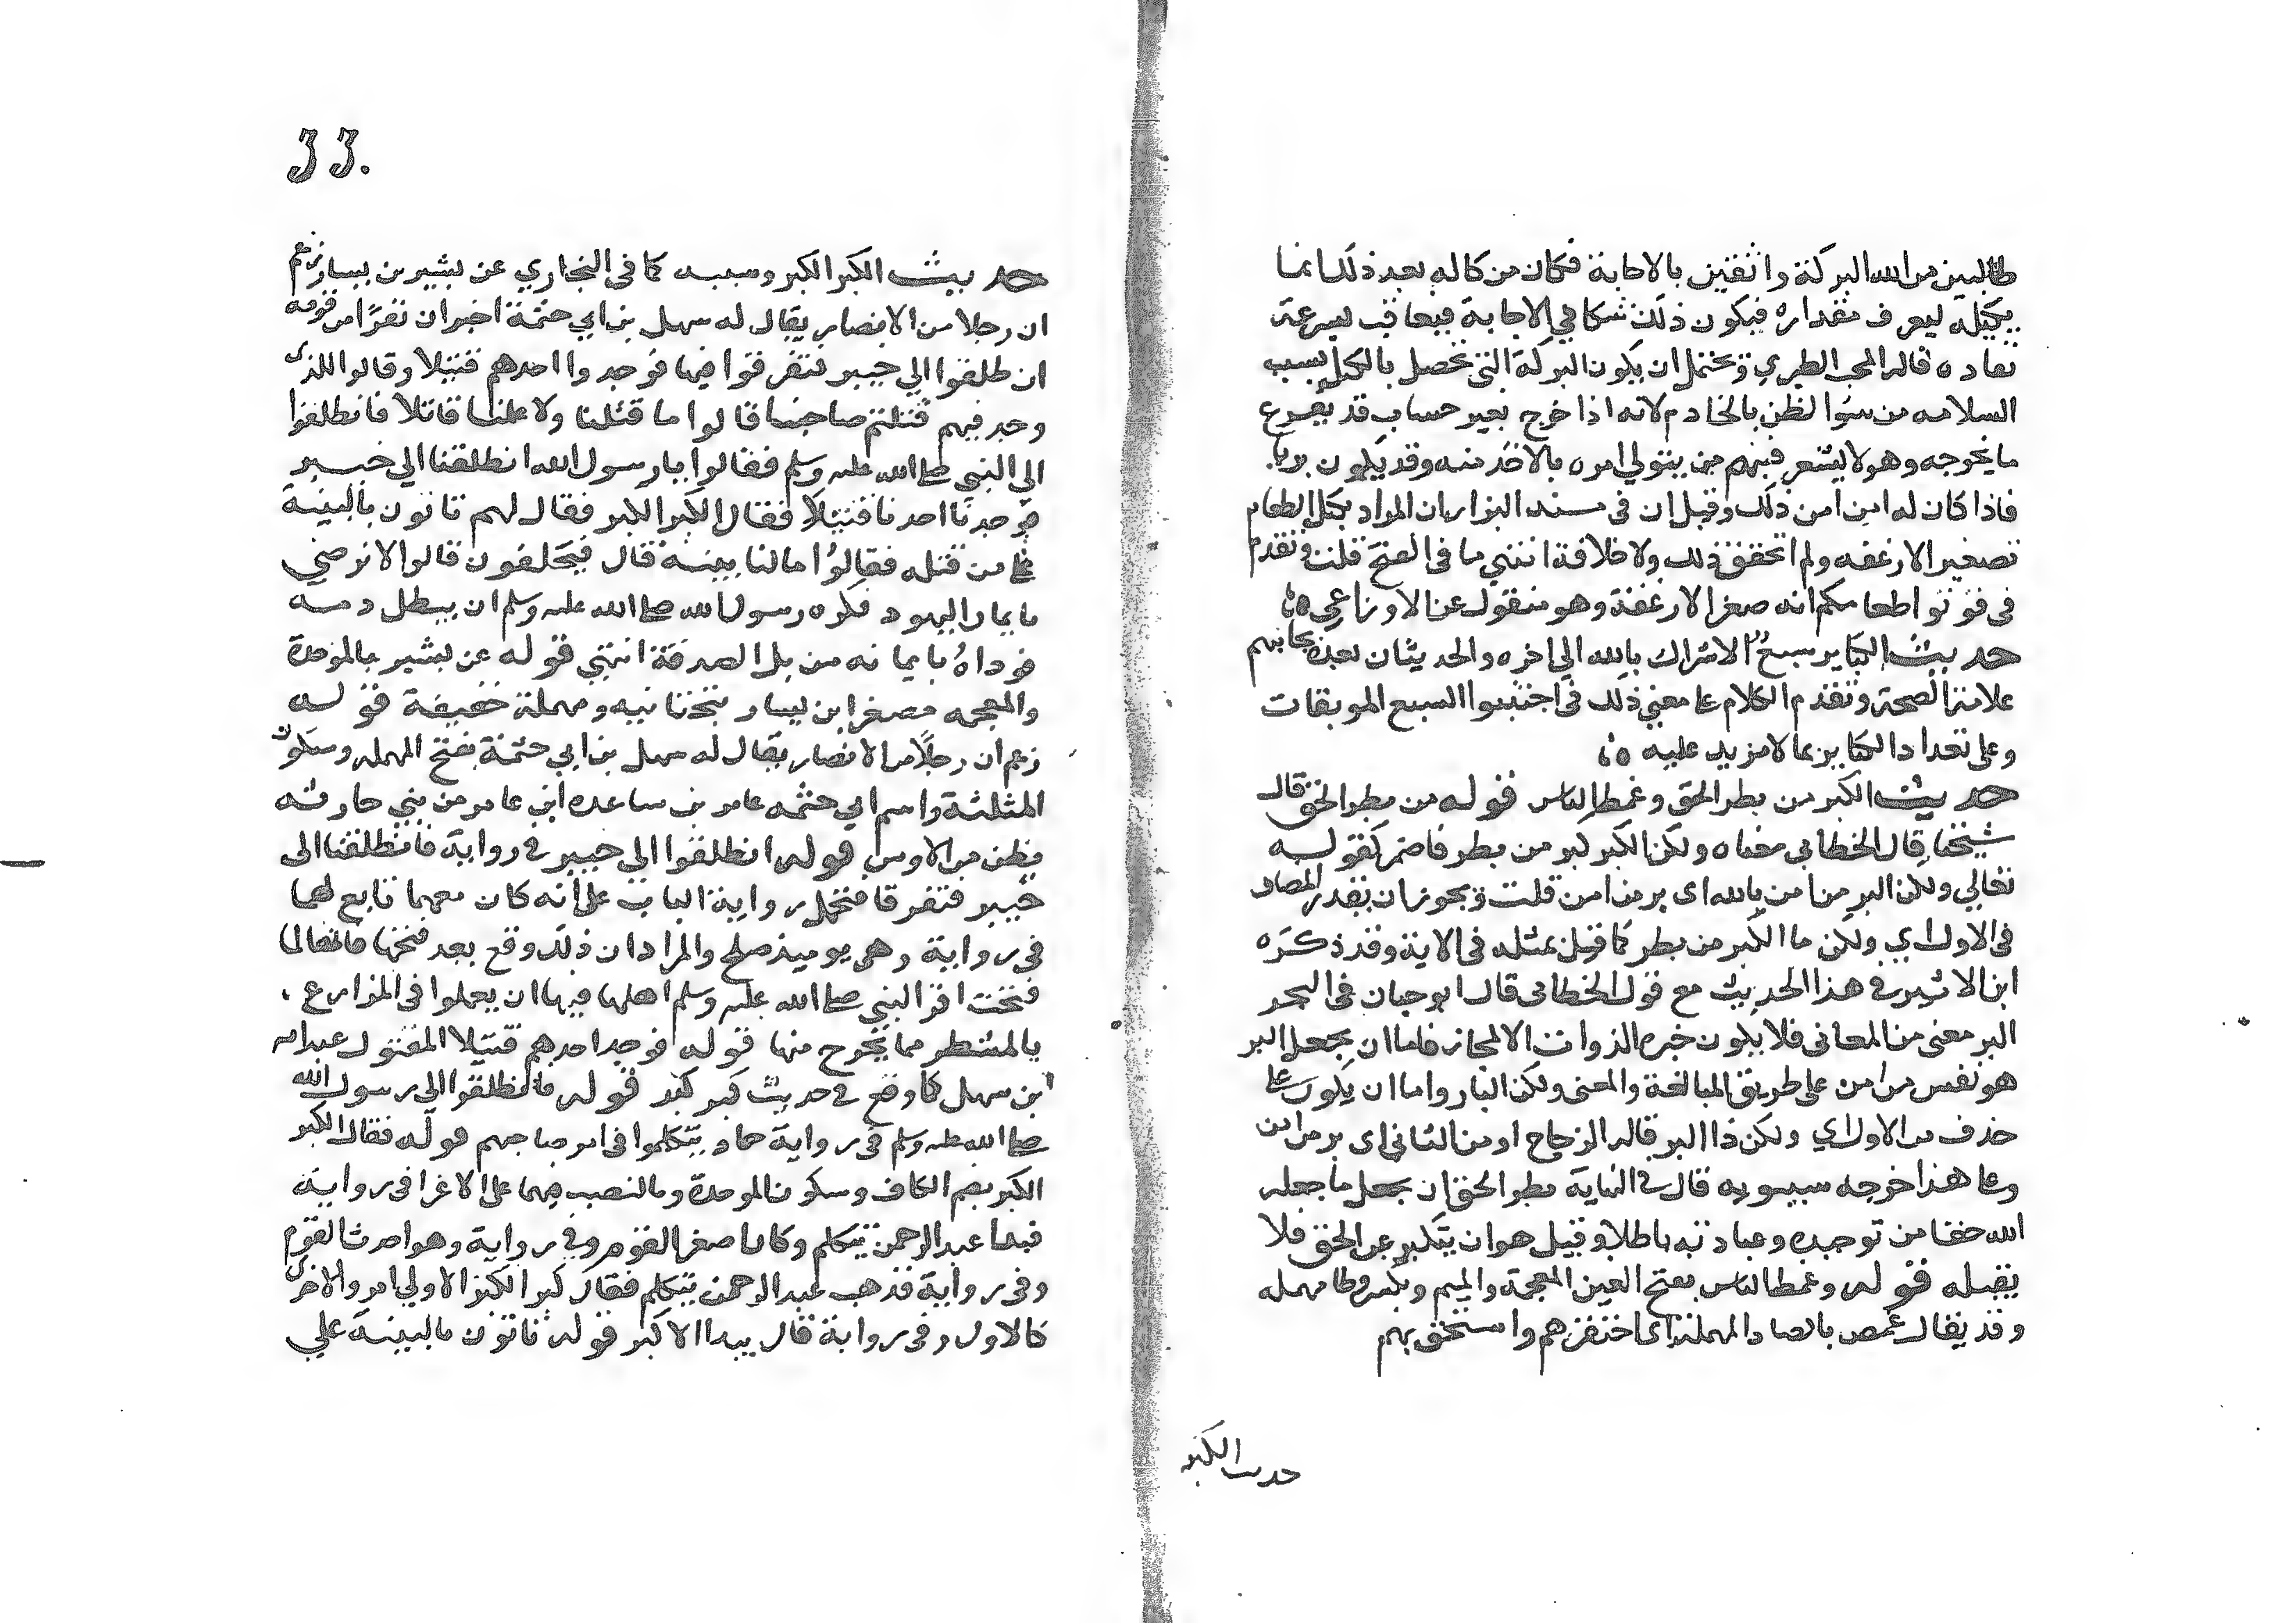 طالبين من الله البركة واثقين بالاجابة فكان من كاله بعد ذلك انما
يكيله ليعرف مقداره فيكون ذلك شكا في الاجابة فيعاقب بسرعة
نفاده قاله المحب الطبري ويحتمل ان يكون البركة التي تحصل بالكيل بسبب
السلامه من سوا لظن بالخادم لانه اذا خرج بغير حساب قد يفرع
ما يخرجه وهو لا يشعر فيتهم من يتولي امره بالاخذ منه وقد يكون بريا
فاذا كان له امن من ذلك وقيل ان في مسند البزار ان المراد بكيل الطعام
تصغير الارغفه ولم اتحقق ذلك ولا خلافه انتهي ما في الفتح قلت وتقدم
في قوتوا طعامكم انه صغر الارغفة وهو منقول عن الاوزاعي
حديث الكباير سبع الاشراك بالله الي اخره والحديثان بعده بجانبهم
علامة الصحة وتقدم الكلام علي معني ذلك في اجتنبوا السبع الموبقات
وعلي تعداد الكباير بما لا مزيد عليه
حديث الكبر من بطر الحق وغمط الناس قوله من بطر الحق قال
شيخنا قال الخطابي معناه ولكن الكبر كبر من بطر فاضمر كقوله
تعالي ولكن البر من امن بالله اي بر من امن قلت ويجوز ان يقدر المضاف
في الاول اي ولكن ما الكبر من بطر كما قيل بمثله في الاية وقد ذكره
ابن الاثير في هذا الحديث مع قول الخطابي قال ابوحيان في البحر
البر معنى من المعاني فلا يكون خبره الذوات الا مجازا فاما ان يجعل البر
هو نفس من امن على طريق المبالغة والمعنى ولكن البار واما ان يكون علي
حذف من الاول اي ولكن ذا البر قاله الزجاج او من الثاني اي بر من امن
وعلي هذا خرجه سيبويه قال في النهاية بطر الحق ان يجعل ما جعله
الله حقا من توحيده وعبادته باطلا وقيل هو ان يتكبر عن الحق فلا
يقبله قوله وغمط الناس بفتح الغين المعجمة والميم وبكسر وطا مهمله
وقد يقال غمص بالصاد المهملة اي احتقرهم واستخف بهم
حديث الكبر
33.
حديث الكبر الكبر وسببه كما في البخاري عن بشير بن يسار زعم
ان رجلا من الانصار يقال له سهل بن ابي حثمة اخبر ان نفرًا من قومه
انطلقوا الي خيبر فتفرقوا فيها فوجدوا احدهم قتيلا وقالوا للذي
وجد فيهم قتلتم صاحبنا قالوا ما قتلنا ولا علمنا قاتلا فانطلقوا
الي النبي صلى الله عليه وسلم فقالوا يا رسول الله انطلقنا الي خيبر
فوجدنا احدنا قتيلا فقال الكبر الكبر فقال لهم تاتون بالبينة
علي من قتله فقالوا ما لنا بينة قال فيحلفون قالوا لا نرضي
بايمان اليهود فكره رسول الله صلى الله عليه وسلم ان يبطل دمه
فوداهُ بايما نه من بل الصدقة انتهي قوله عن بشير بالموحدة
والمعجمه مصغرا بن يسار بتحتانيه ومهملة خفيفة قوله
زعم ان رجلًا من الانصار يقال له سهل بن ابي حثمة بفتح المهمله وسكون
المثلثة واسم ابي حثمه عامر بن ساعده ابن عامر من بني حارثه
بطن من الاوس قوله انطلقوا الي خيبر في رواية فانطلقنا الى
خيبر فتفرقا فتحمل رواية الباب علي انه كان معهما تابع لهما
في رواية وهي يوميذ صلح والمراد ان ذلك وقع بعد فتحها فانها لما
فتحت اقر النبي صلى الله عليه وسلم اهلها فيها ان يعملوا في المزارع
بالشطر مما يخرج منها قوله فوجدا احدهم قتيلا المقتول عبد الله
ابن سهل كما وقع في حديث كبر كبر قوله فانطلقوا الي رسول الله
صلى الله عليه وسلم في رواية حماد يتكلموا في امر صاحبهم قوله فقال الكبر
الكبر بضم الكاف وسكون الموحدة وبالنصب فيهما على الاغرا في رواية
فبدا عبد الرحمن يتكلم وكان اصغر القوم وفي رواية وهو احدث القوم
وفي رواية فذهب عبد الرحمن يتكلم فقال كبر الكبر الاولي امر والاخرى
كالاول وفي رواية قال يبدا الاكبر قوله تاتون بالبينة علي